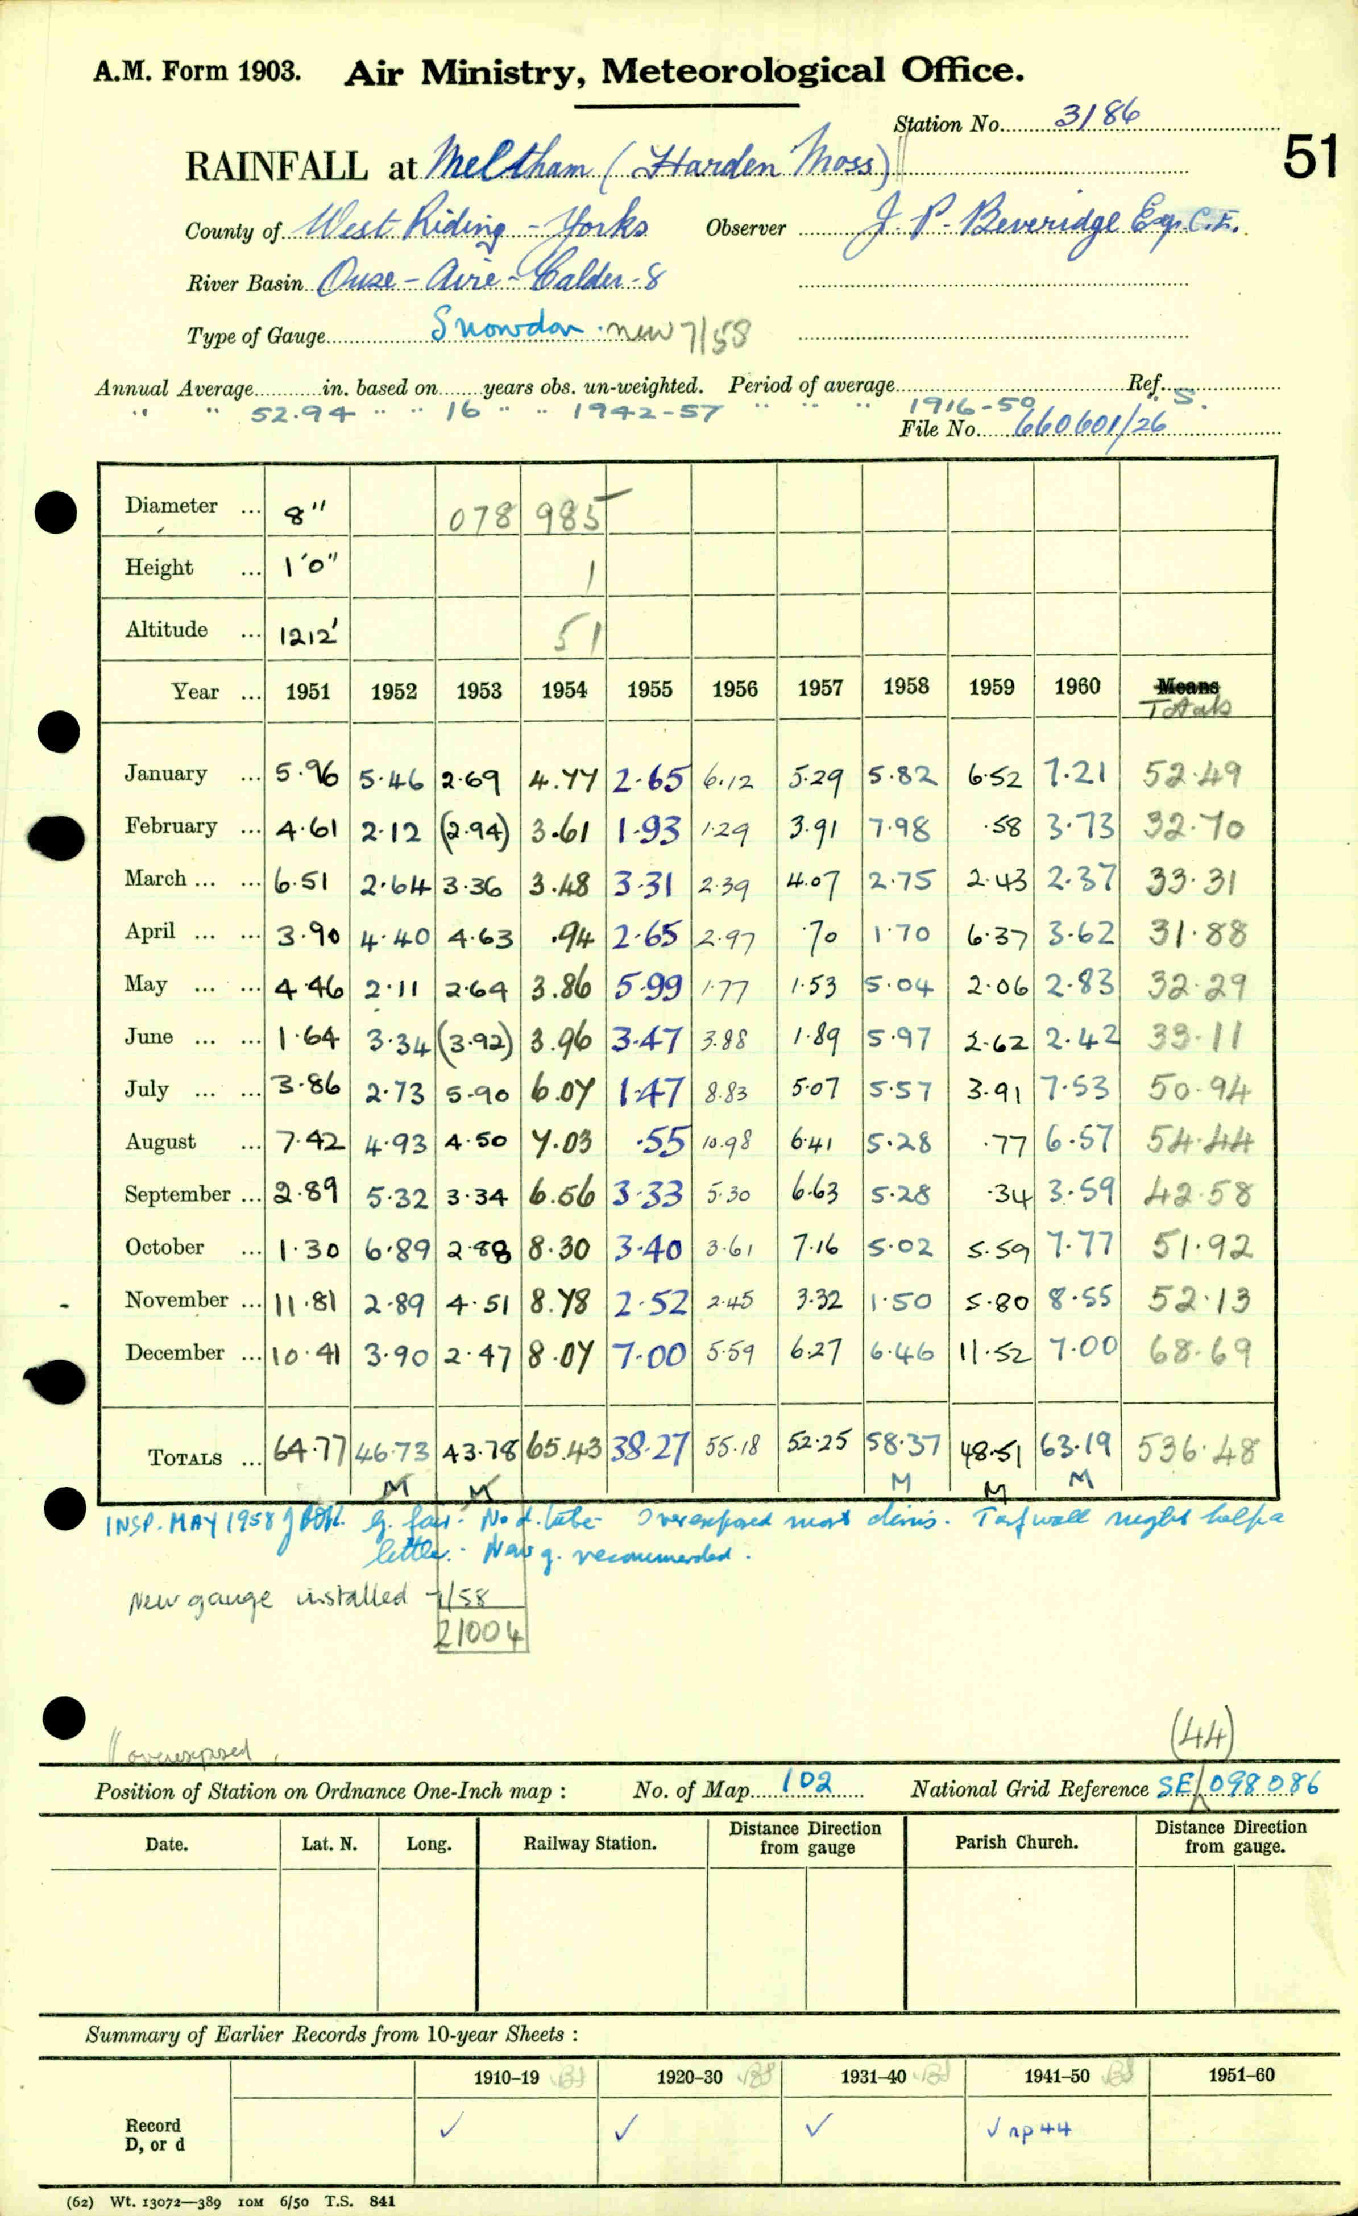 A.M. Form 1903. Air Ministry, Meteorological Office.
Station No. 3186
51
RAINFALL at Meltham (Harden Moss)
County of West Riding - Yorks Observer J. P. Beveridge Esq. C.E.
River Basin Ouse - Aire - Calder - 8
Type of Gauge Snowdon . new 7/58
Annual Average in. based on years obs. un-weighted. Period of average Ref.
" " 52.94 " " 16 " " 1942-57 " " " 1916-50 " S.
File No. 660601/26
Diameter ... 8" 078 985
Height ... 1'0" 1
Altitude ... 1212' 51
Year ... 1951 1952 1953 1954 1955 1956 1957 1958 1959 1960 Means
Totals
January ... 5.96 5.46 2.69 4.77 2.65 6.12 5.29 5.82 6.52 7.21 52.49
February ... 4.61 2.12 (2.94) 3.61 1.93 1.29 3.91 7.98 .58 3.73 32.70
March ... ... 6.51 2.64 3.36 3.48 3.31 2.39 4.07 2.75 2.43 2.37 33.31
April ... ... 3.90 4.40 4.63 .94 2.65 2.97 .70 1.70 6.37 3.62 31.88
May ... ... 4.46 2.11 2.64 3.86 5.99 1.77 1.53 5.04 2.06 2.83 32.29
June ... ... 1.64 3.34 (3.92) 3.96 3.47 3.88 1.89 5.97 2.62 2.42 33.11
July ... ... 3.86 2.73 5.90 6.07 1.47 8.83 5.07 5.57 3.91 7.53 50.94
August ... 7.42 4.93 4.50 7.03 .55 10.98 6.41 5.28 .77 6.57 54.44
September ... 2.89 5.32 3.34 6.56 3.33 5.30 6.63 5.28 .34 3.59 42.58
October ... 1.30 6.89 2.88 8.30 3.40 3.61 7.16 5.02 5.59 7.77 51.92
November ... 11.81 2.89 4.51 8.78 2.52 2.45 3.32 1.50 5.80 8.55 52.13
December ... 10.41 3.90 2.47 8.07 7.00 5.59 6.27 6.46 11.52 7.00 68.69
TOTALS ... 64.77 46.73 43.78 65.43 38.27 55.18 52.25 58.37 48.51 63.19 536.48
M M M M M
INSP. MAY 1958 g. fair. No d. tube. Overexposed most dirns. Turf wall might help a
little. New g. recommended.
New gauge installed 7/58
21004
(44)
" overexposed
Position of Station on Ordnance One-Inch map : No. of Map 102 National Grid Reference SE/098086
Date. Lat. N. Long. Railway Station. Distance from Direction gauge Parish Church. Distance from Direction gauge.
Summary of Earlier Records from 10-year Sheets :
1910-19 1920-30 1931-40 1941-50 1951-60
Record ✓ ✓ ✓ ✓ np 44
D, or d
(62) Wt. 13072—389 10M 6/50 T.S. 841